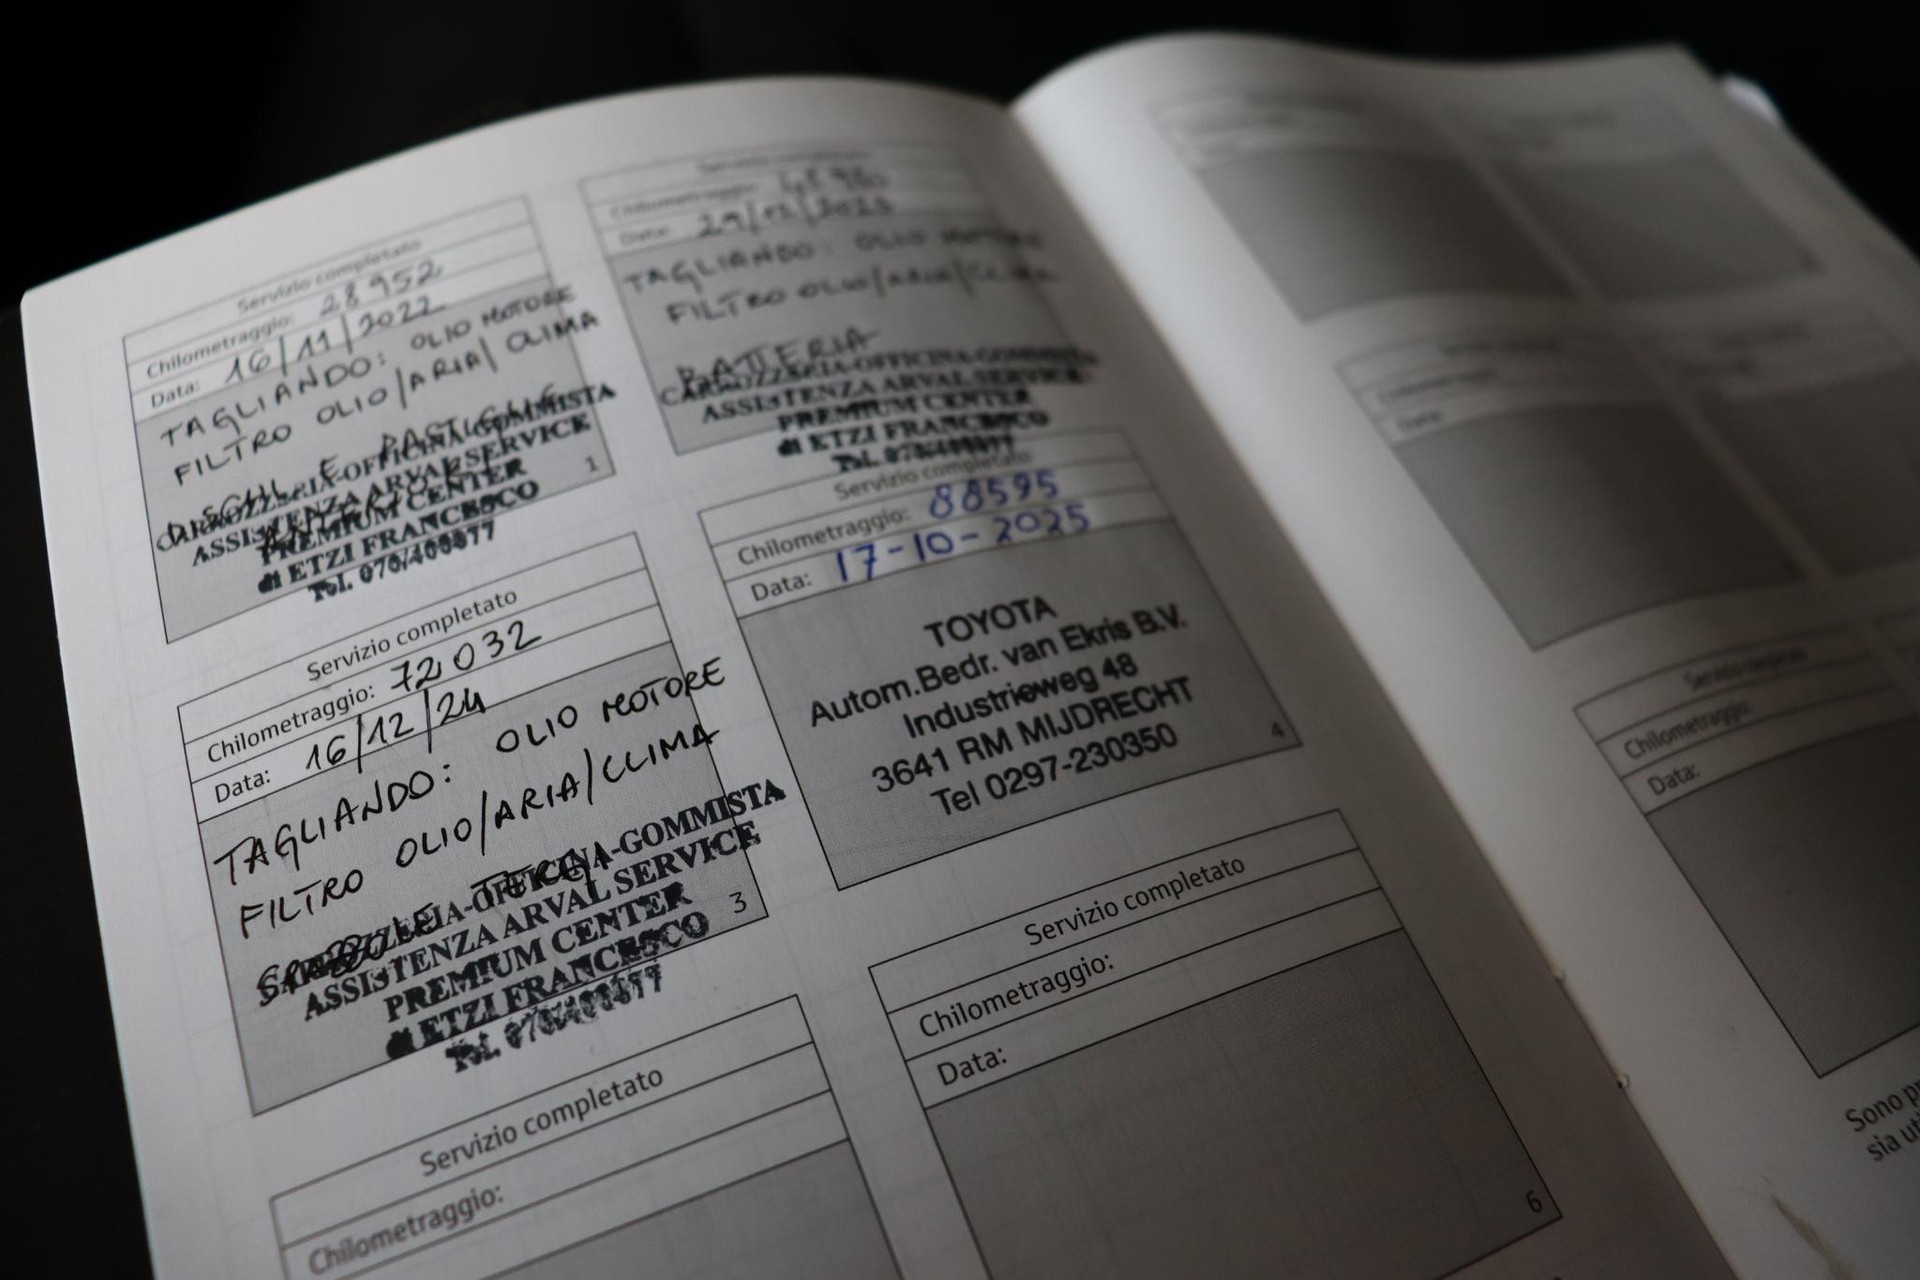 Servizio completato
Chilometraggio: 28952
Data: 16/11/2022
TAGLIANDO: OLIO MOTORE
FILTRO OLIO/ARIA/CLIMA
E PASTIGLIE
CARROZZERIA-OFFICINA-GOMMISTA
ASSISTENZA ARVAL SERVICE
PREMIUM CENTER
di ETZI FRANCESCO
Tel.
1
Servizio completato
Chilometraggio:
Data:
TAGLIANDO: OLIO MOTORE
FILTRO OLIO/ARIA/CLIMA
BATTERIA
CARROZZERIA-OFFICINA-GOMMISTA
ASSISTENZA ARVAL SERVICE
PREMIUM CENTER
di ETZI FRANCESCO
Tel.
Servizio completato
Chilometraggio: 72032
Data: 16/12/24
TAGLIANDO: OLIO MOTORE
FILTRO OLIO/ARIA/CLIMA
SPAZZOLE TERGI
CARROZZERIA-OFFICINA-GOMMISTA
ASSISTENZA ARVAL SERVICE
PREMIUM CENTER
di ETZI FRANCESCO
Tel.
3
Servizio completato
Chilometraggio: 88595
Data: 17-10-2025
TOYOTA
Autom.Bedr. van Ekris B.V.
Industrieweg 48
3641 RM MIJDRECHT
Tel 0297-230350
4
Servizio completato
Chilometraggio:
Servizio completato
Chilometraggio:
Data:
6
Chilometraggio:
Data:
Servizio completato
Chilometraggio:
Data:
Sono
sia